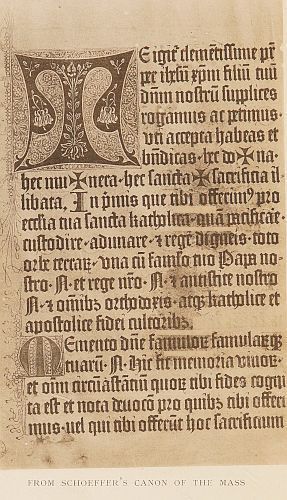 TEigit᷑ cleme̅tissime pr̅
per ihesu̅ xp̅m filiu̅ tuu̅
dn̅m nostru̅ supplices
rogamus ac petimus·
vti accepta habeas et
bn̅dicas· hec do✠na
hec mu✠nera· hec sancta✠sacrificia il=
libata, In p̅mis que tibi offerimꝰ pro
ecclia tua sancta katholica· qua̅ pacificare·
custodire· adunare· ⁊ reg̅e digneis· toto
orbe terraꝝ· vna cu̅ famlo tuo Papa no=
stro· N· et rege nr̅o· N· ⁊ antistite nostro
N· ⁊ om̅ibꝫ orthodoxis· atqꝫ katholice et
apostolice fidei cultoribꝫ.
Memento dn̅e famuloꝝ famularu̅qꝫ
tuaru̅· N· Hic fit memoria viuoꝝ·
et om̅i circu̅asta̅tiu̅ quoꝝ tibi fides cogni
ta est et nota deuoc̅o pro quibꝫ tibi offeri
mus· uel qui tibi offeru̅t hoc sacrificium
FROM SCHOEFFER'S CANON OF THE MASS